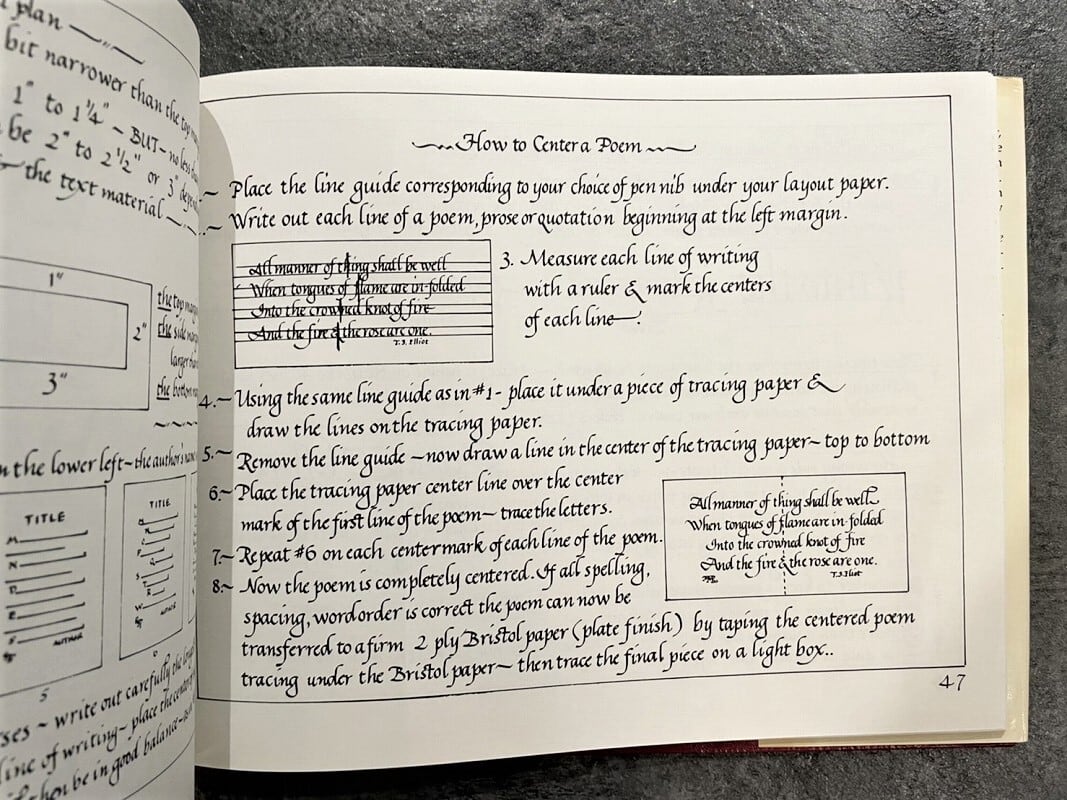 plan
bit narrower than the top
1" to 1¼" ~ BUT ~ no less
be 2" to 2½" or 3"
the text material
1"
2"
3"
the top
the side
larger
the bottom
n the lower left ~ the author's
TITLE
AUTHOR
TITLE
AUTHOR
5
6
~ write out carefully the
line of writing ~ place the center
be in good balance
How to Center a Poem
Place the line guide corresponding to your choice of pen nib under your layout paper.
Write out each line of a poem, prose or quotation beginning at the left margin.
All manner of thing shall be well
When tongues of flame are in-folded
Into the crowned knot of fire
And the fire & the rose are one.
T.S. Elliot
3. Measure each line of writing
with a ruler & mark the centers
of each line.
4. ~ Using the same line guide as in #1 - place it under a piece of tracing paper &
draw the lines on the tracing paper.
5. ~ Remove the line guide ~ now draw a line in the center of the tracing paper ~ top to bottom
6. ~ Place the tracing paper center line over the center
mark of the first line of the poem ~ trace the letters.
7. ~ Repeat #6 on each center mark of each line of the poem.
8. ~ Now the poem is completely centered. If all spelling,
spacing, word order is correct the poem can now be
transferred to a firm 2 ply Bristol paper (plate finish) by taping the centered poem
tracing under the Bristol paper ~ then trace the final piece on a light box..
All manner of thing shall be well
When tongues of flame are in-folded
Into the crowned knot of fire
And the fire & the rose are one.
T.S. Eliot
47